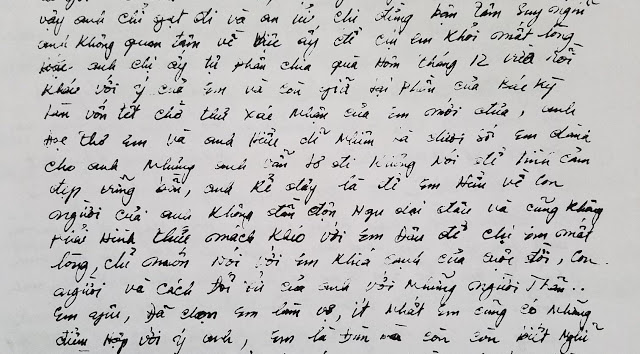 vậy anh chỉ gạt đi và an ủi chị đừng bận tâm suy nghĩ
anh không quan tâm về việc ấy để chị em khỏi mất lòng
anh chị ấy tự phân chia quà hôm tháng 12 vừa rồi
khác với ý của em và còn giữ lại phần của Bác Kỳ
làm vốn tết chờ thư xác nhận của em mới đưa, anh
đọc thơ em và anh hiểu dĩ nhiên là dưới số em dành
cho anh nhưng anh vẫn lờ đi không nói để tình cảm
đẹp vững bền, anh kể đây là để em hiểu về con
người của anh không đần độn ngu dại đâu và cũng không
phải hình thức mách khéo với em đâu để chị em mất
lòng, chỉ muốn nói với em khía cạnh của cuộc đời, con
người và cách đối xử của anh với những người thân..
Em yêu, đã chọn em làm vợ, ít nhất em cũng có những
điểm hợp với ý anh, em là đàn bà còn son biết nghĩ